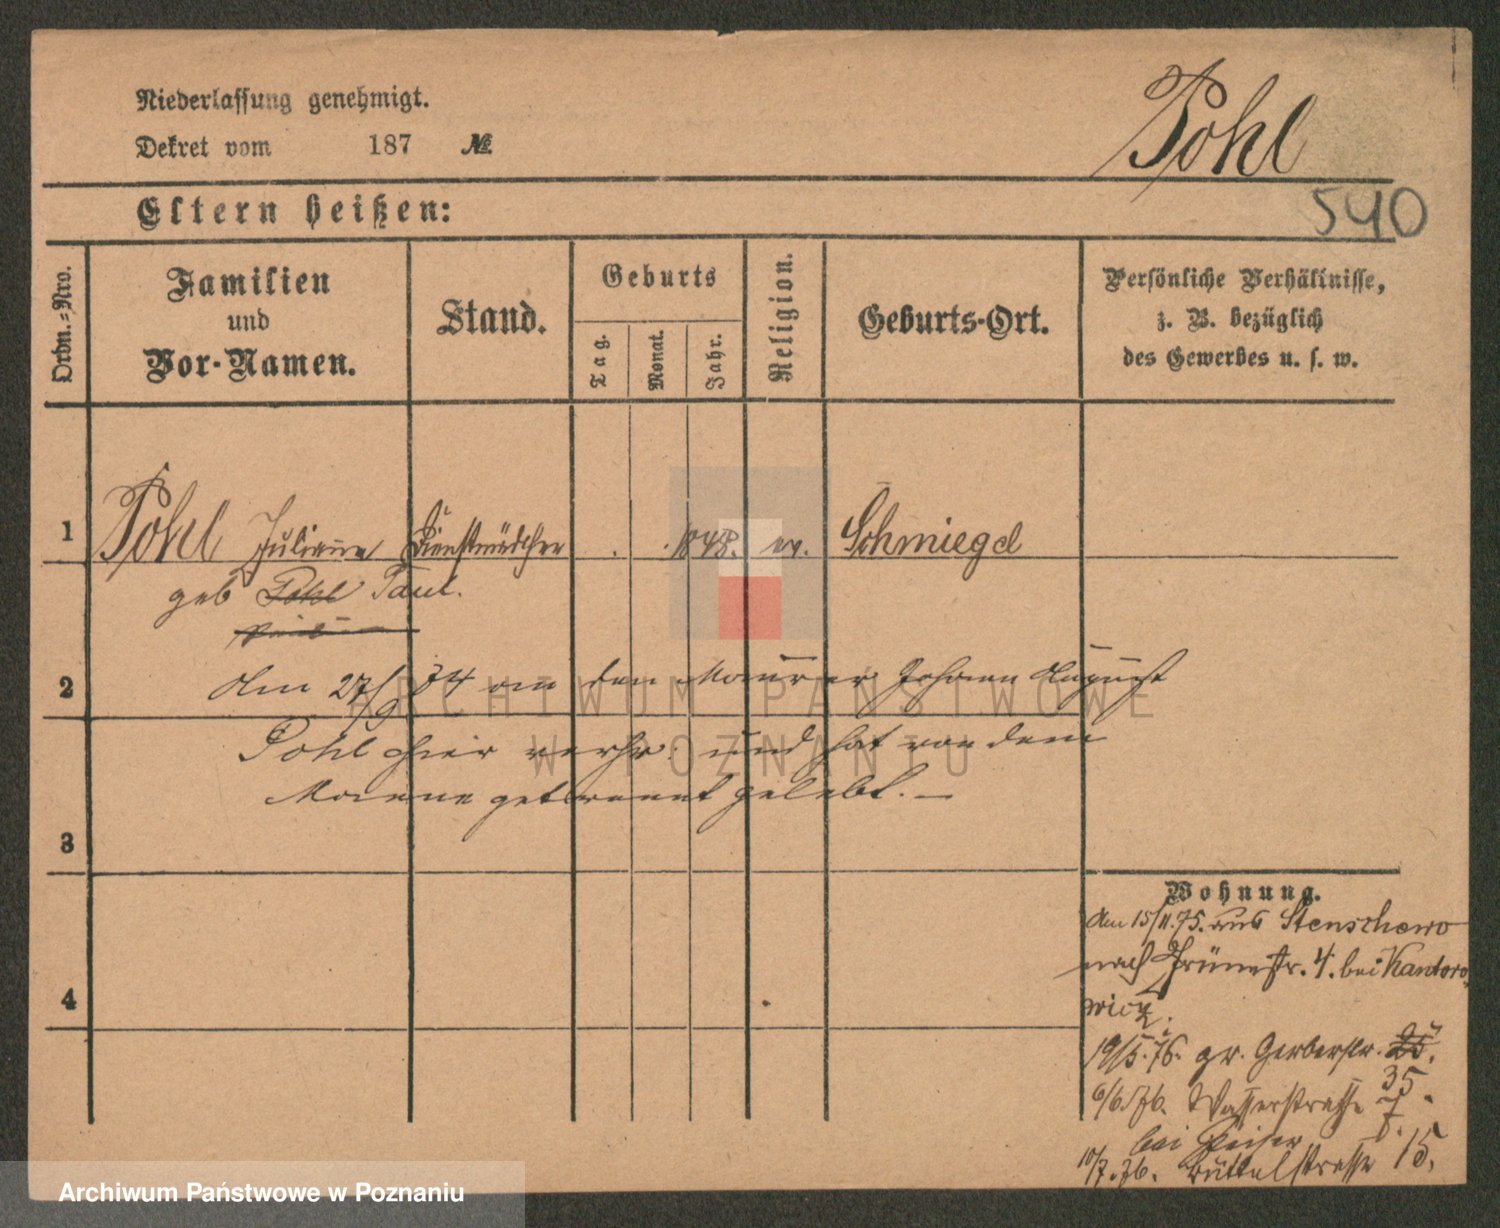 Niederlassung genehmigt.
Dekret vom 187 №
Pohl
540
Eltern heißen:
Ordn.-Nro.
Familien
und
Vor-Namen.
Stand.
Geburts
Tag.
Monat.
Jahr.
Religion.
Geburts-Ort.
Persönliche Verhältnisse,
z. B. bezüglich
des Gewerbes u. s. w.
1 Pohl Julianna Dienstmädchen 1848. ev. Schmiegel
geb Pohl Paul.
2 Am 27/9 74 an den Maurer Johann August
Pohl hier verh. und hat von dem
Manne getrennt gelebt. —
3
4
Wohnung.
Am 15/11.75. aus Stenschewo
nach Grünestr. 4. bei Kantoro
wicz.
19/5.76. gr. Gerberstr. 25.
35
6/6.76. Wasserstrasse 7.
bei
10/7.76. Büttelstrasse 15.
ARCHIWUM PAŃSTWOWE
W POZNANIU
Archiwum Państwowe w Poznaniu